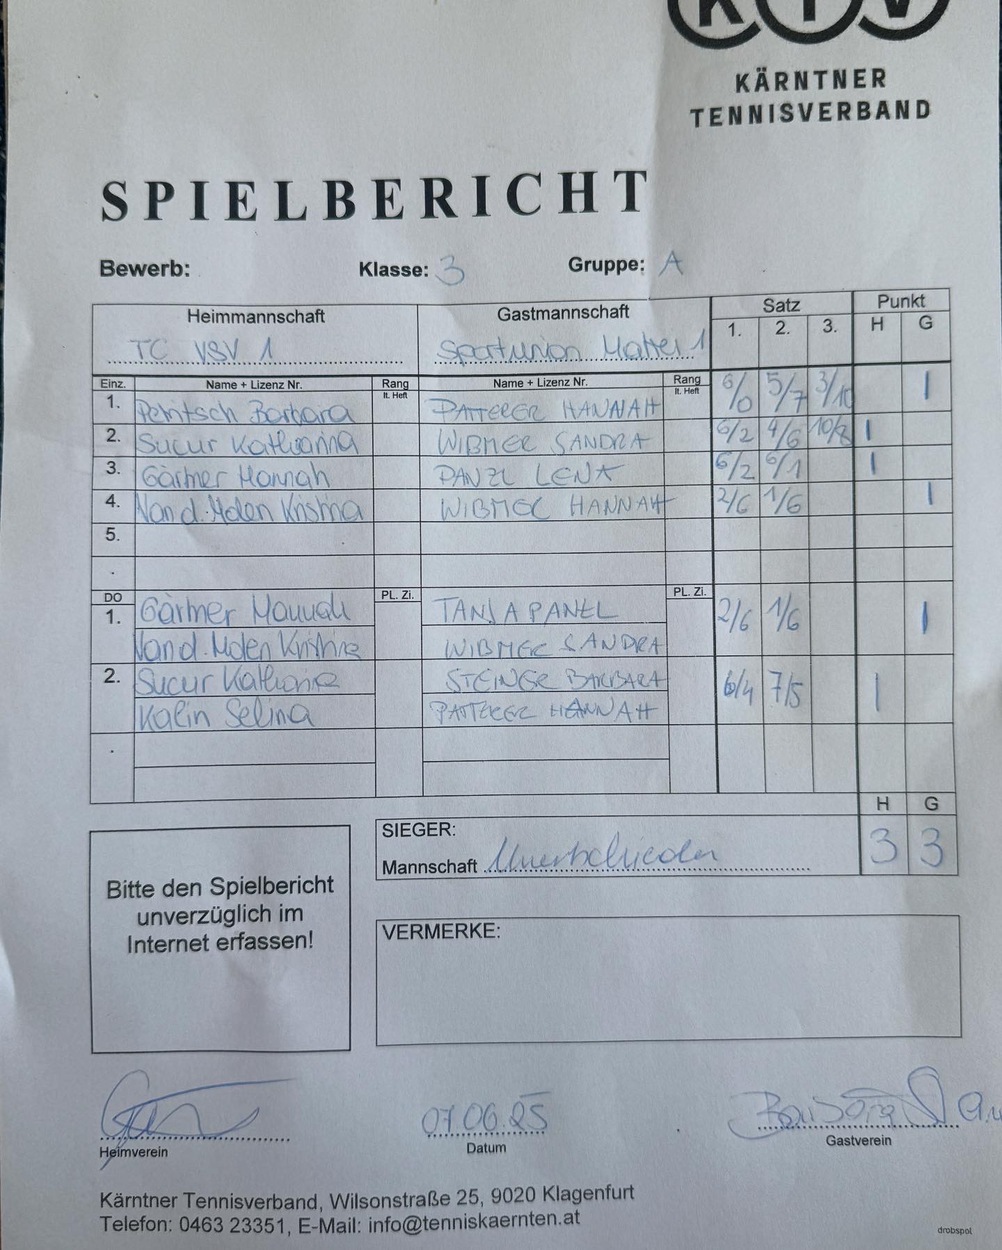 KTV
KÄRNTNER
TENNISVERBAND
SPIELBERICHT
Bewerb: Klasse: 3 Gruppe: A
Heimmannschaft Gastmannschaft Satz Punkt
1. 2. 3. H G
TC VSV 1 Sportunion Matrei 1
Einz. Name + Lizenz Nr. Rang lt. Heft Name + Lizenz Nr. Rang lt. Heft
1. Barbara PATTERER HANNAH 6/0 5/7 3/10 |
2. Sucur Katharina WIBMER SANDRA 6/2 4/6 10/8 |
3. Gärtner Hannah PANZL LENA 6/2 6/1 |
4. Van d. Molen Kristina WIBMER HANNAH 2/6 1/6 |
5.
.
DO PL. Zi. PL. Zi.
1. Gärtner Hannah TANJA PANZL 2/6 1/6 |
Van d. Molen Kristina WIBMER SANDRA
2. Sucur Katharina STEINER BARBARA 6/4 7/5 |
Kalin Selina PATTERER HANNAH
.
H G
SIEGER:
Mannschaft Unentschieden 3 3
Bitte den Spielbericht
unverzüglich im
Internet erfassen!
VERMERKE:
07.06.25 Barbara
Heimverein Datum Gastverein
Kärntner Tennisverband, Wilsonstraße 25, 9020 Klagenfurt
Telefon: 0463 23351, E-Mail: info@tenniskaernten.at
drobspol